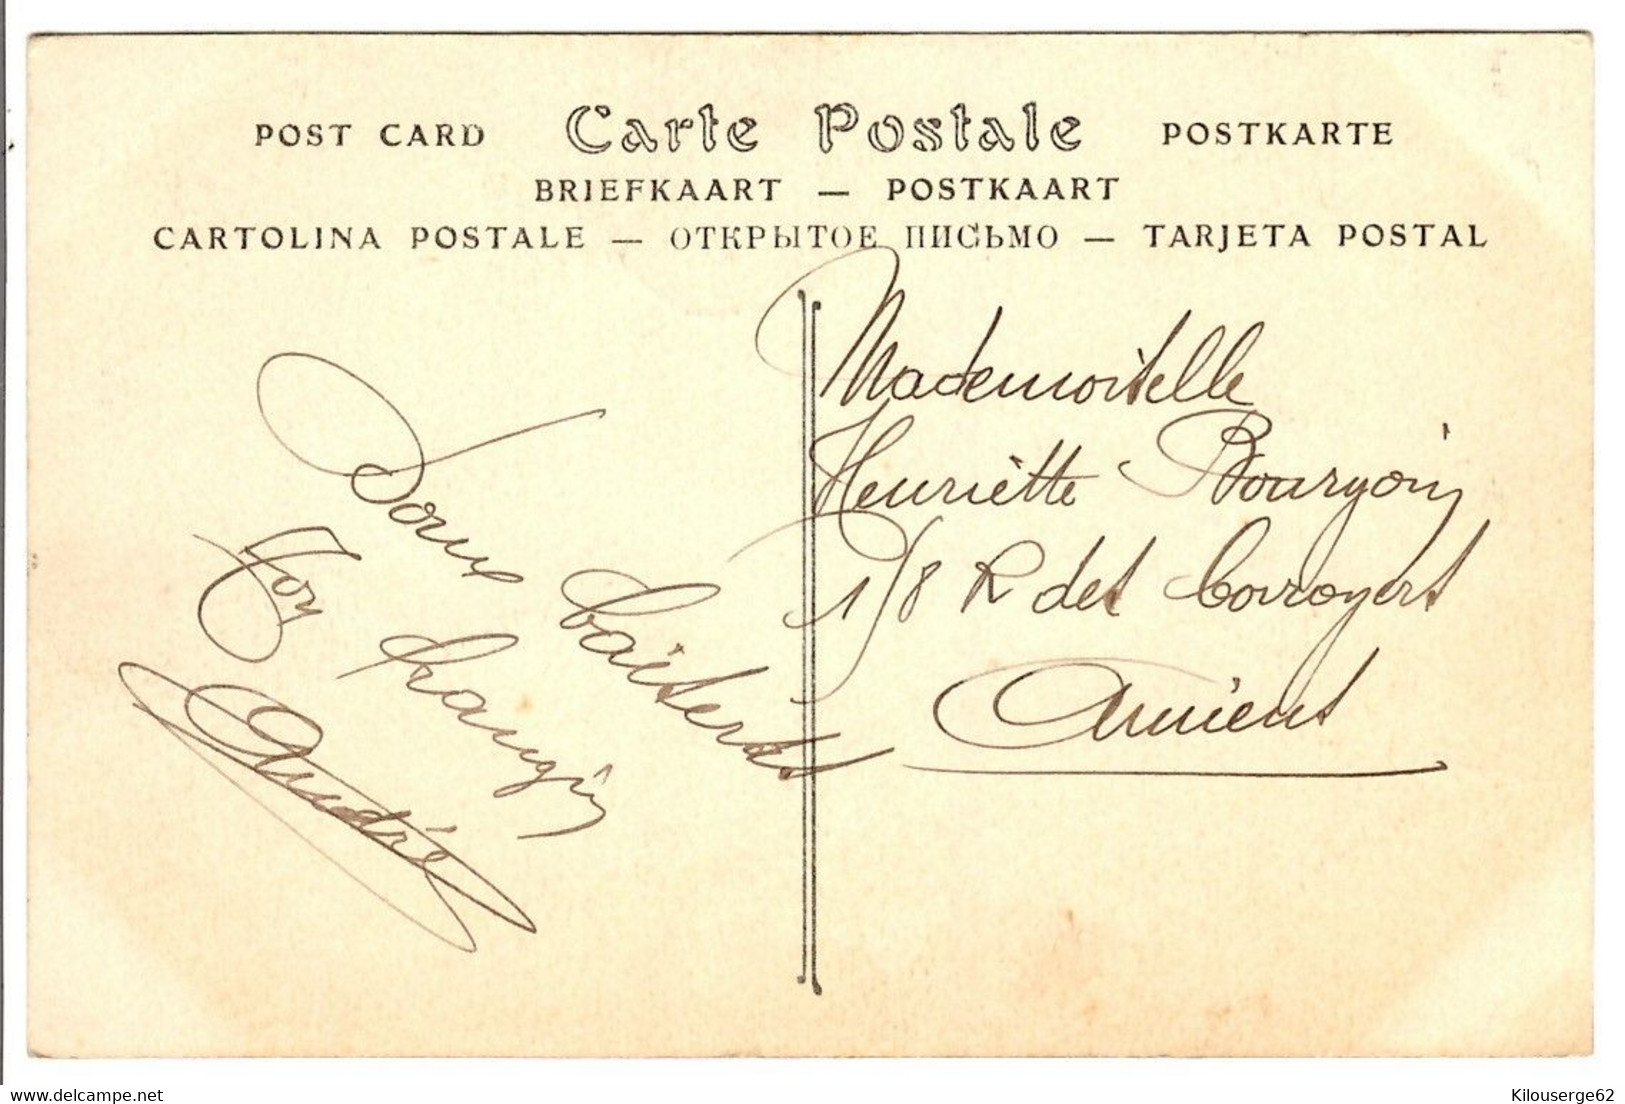 POST CARD Carte Postale POSTKARTE
BRIEFKAART — POSTKAART
CARTOLINA POSTALE — ОТКРЫТОЕ ПИСЬМО — TARJETA POSTAL
Doux baisers
Ton frangin
André
Mademoiselle
Henriette Bourgoin
R des Corroyers
Amiens
delcampe.net
Kilouserge62